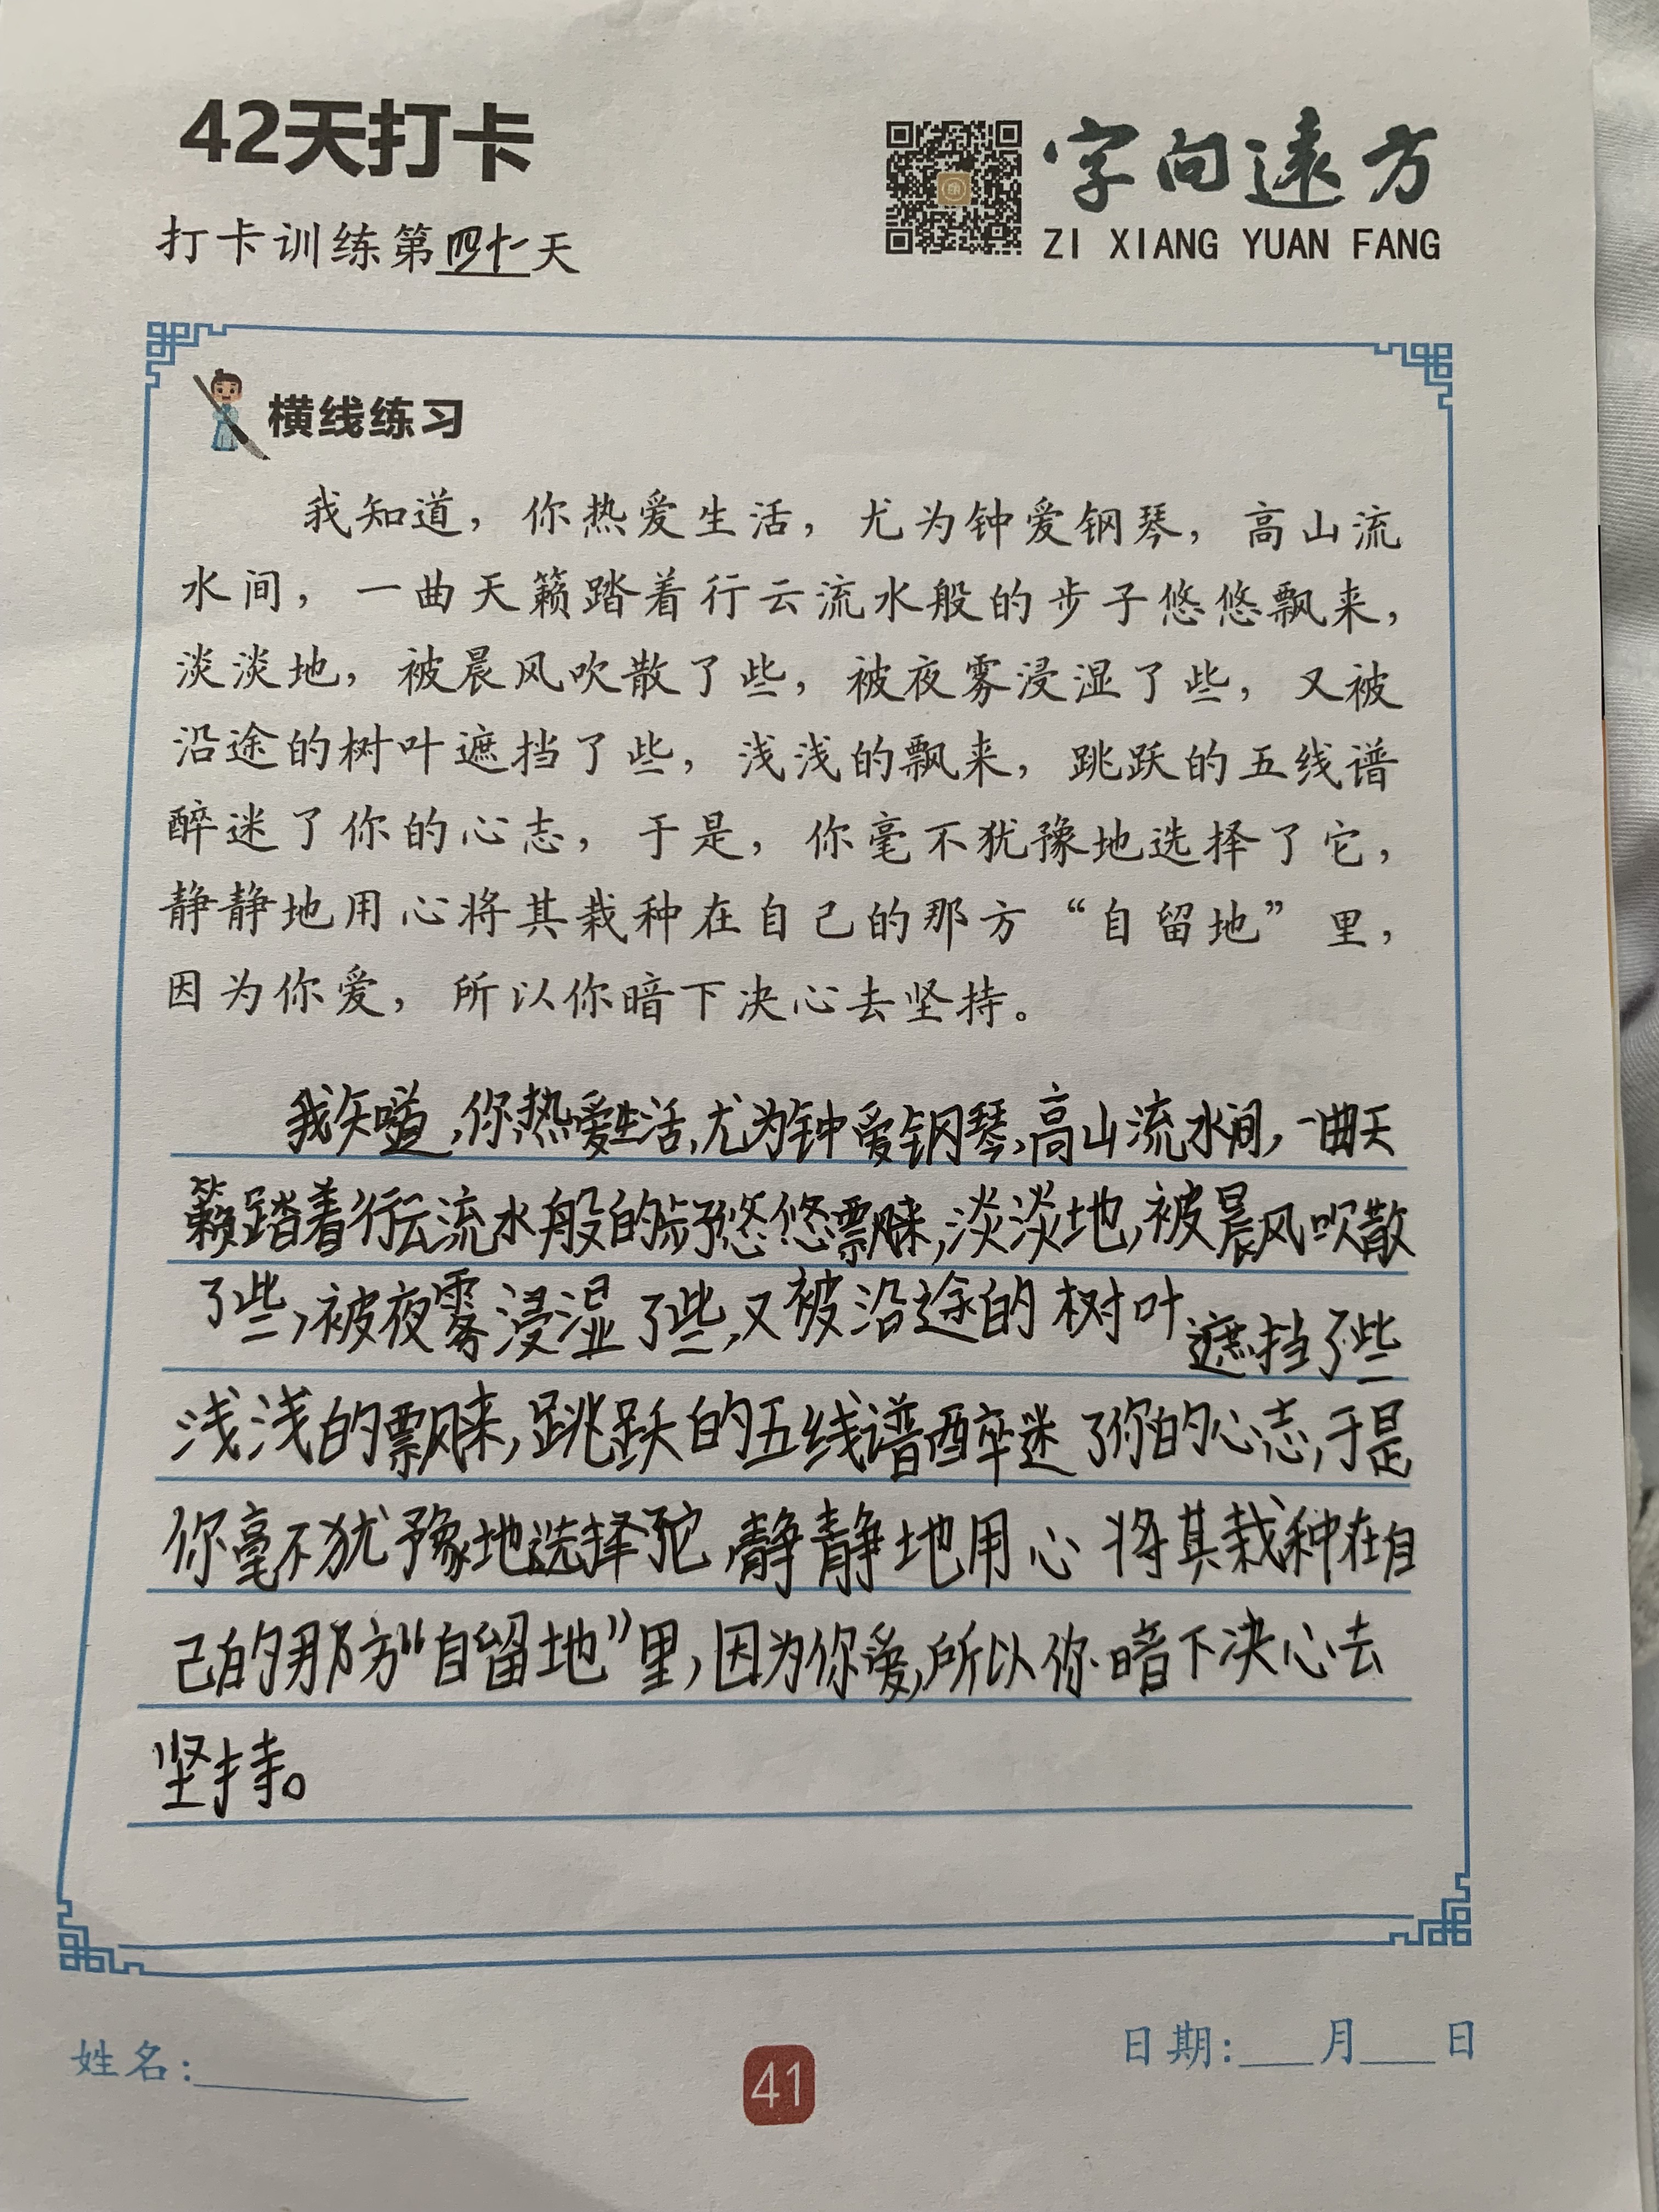 42天打卡
字向遠方
打卡训练第四十一天
ZI XIANG YUAN FANG
横线练习
我知道，你热爱生活，尤为钟爱钢琴，高山流
水间，一曲天籁踏着行云流水般的步子悠悠飘来，
淡淡地，被晨风吹散了些，被夜雾浸湿了些，又被
沿途的树叶遮挡了些，浅浅的飘来，跳跃的五线谱
醉迷了你的心志，于是，你毫不犹豫地选择了它，
静静地用心将其栽种在自己的那方“自留地”里，
因为你爱，所以你暗下决心去坚持。
我知道，你热爱生活，尤为钟爱钢琴，高山流水间，一曲天
籁踏着行云流水般的步子悠悠飘来，淡淡地，被晨风吹散
了些，被夜雾浸湿了些，又被沿途的树叶遮挡了些
浅浅的飘来，跳跃的五线谱醉迷了你的心志，于是
你毫不犹豫地选择了它，静静地用心将其栽种在自
己的那方“自留地”里，因为你爱，所以你暗下决心去
坚持。
姓名：
41
日期：___月___日